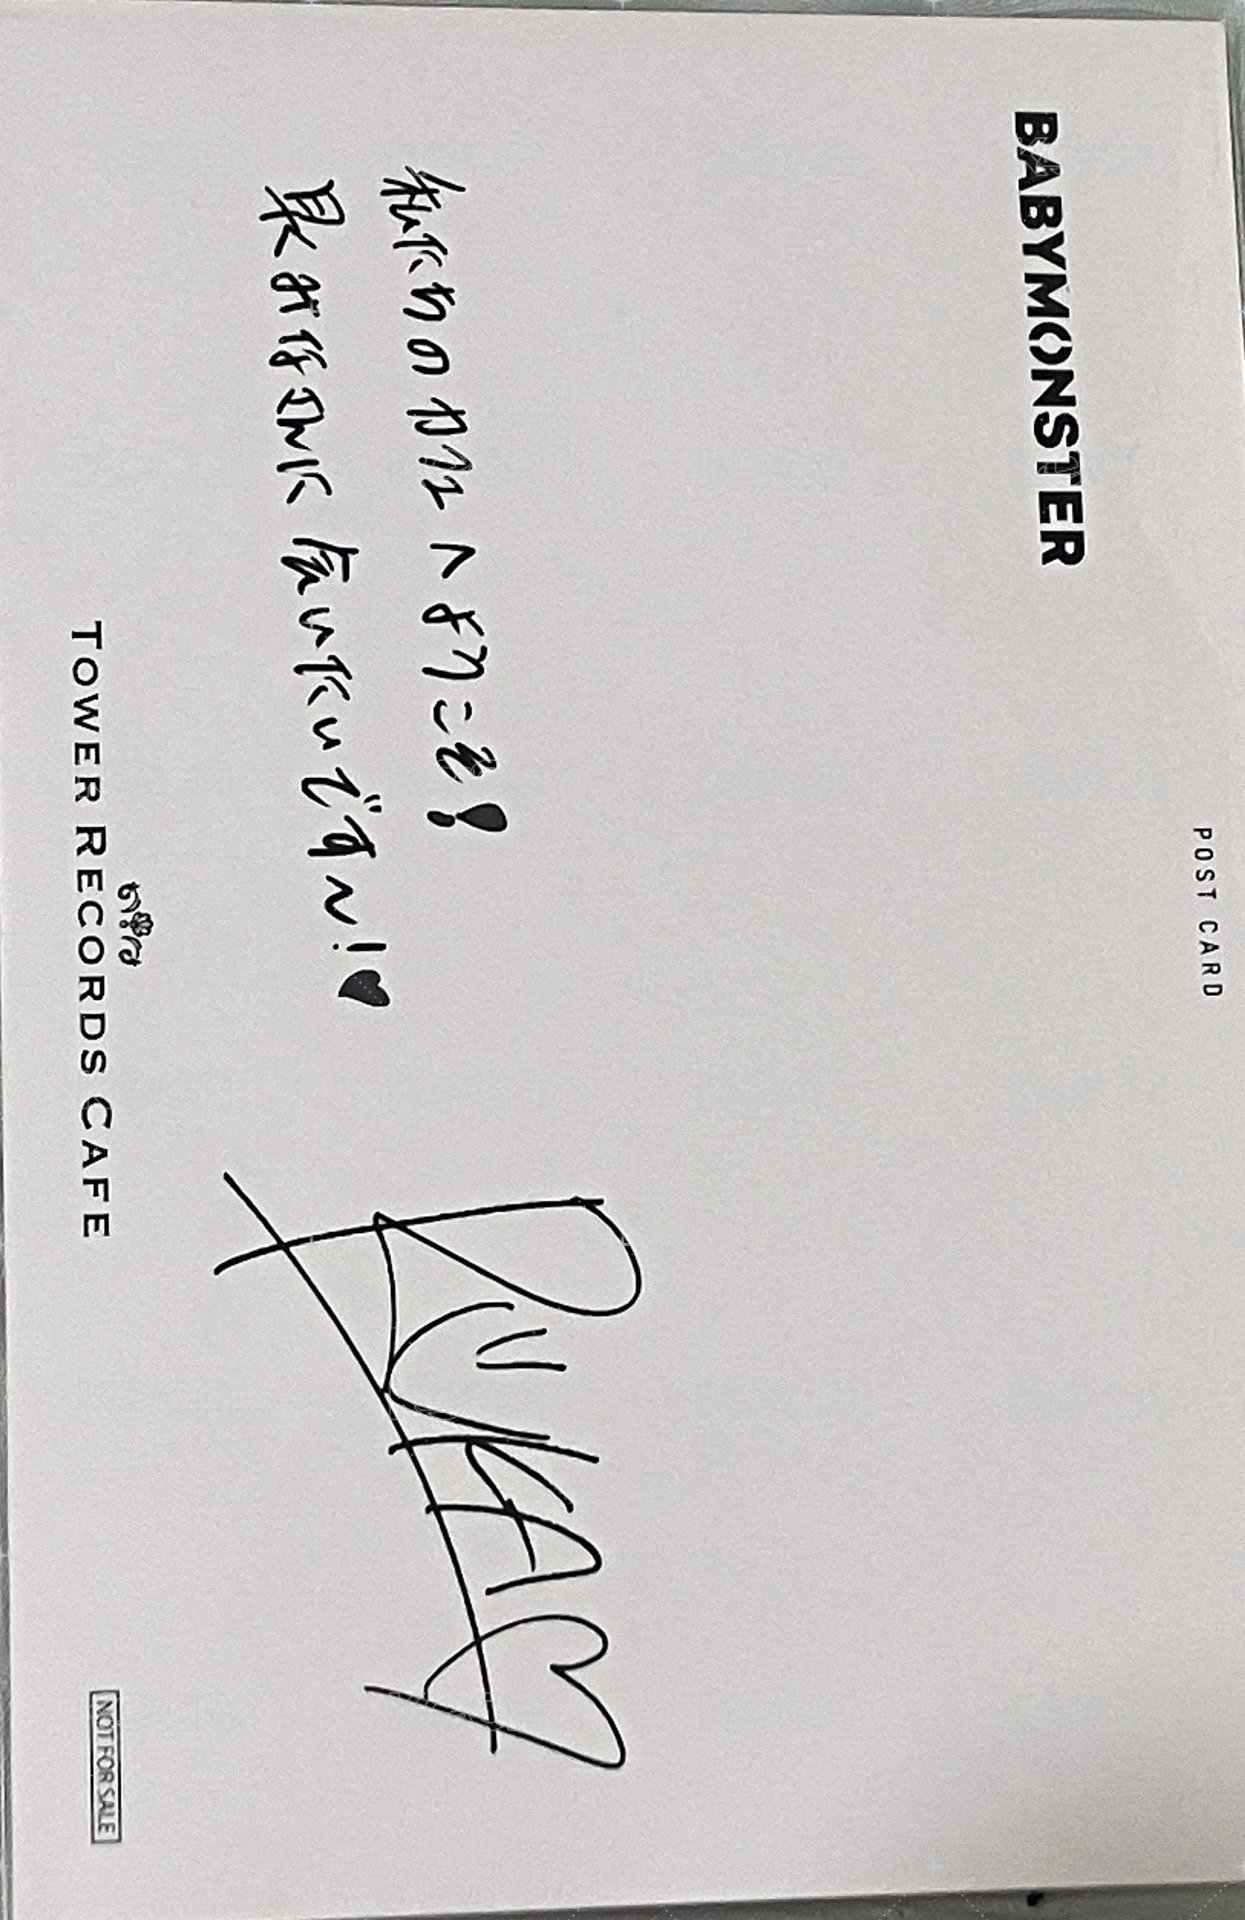 POST CARD
BABYMONSTER
私たちのカフェへようこそ!
早くみなさんに会いたいです〜!♥
RUKA♡
TOWER RECORDS CAFE
NOT FOR SALE